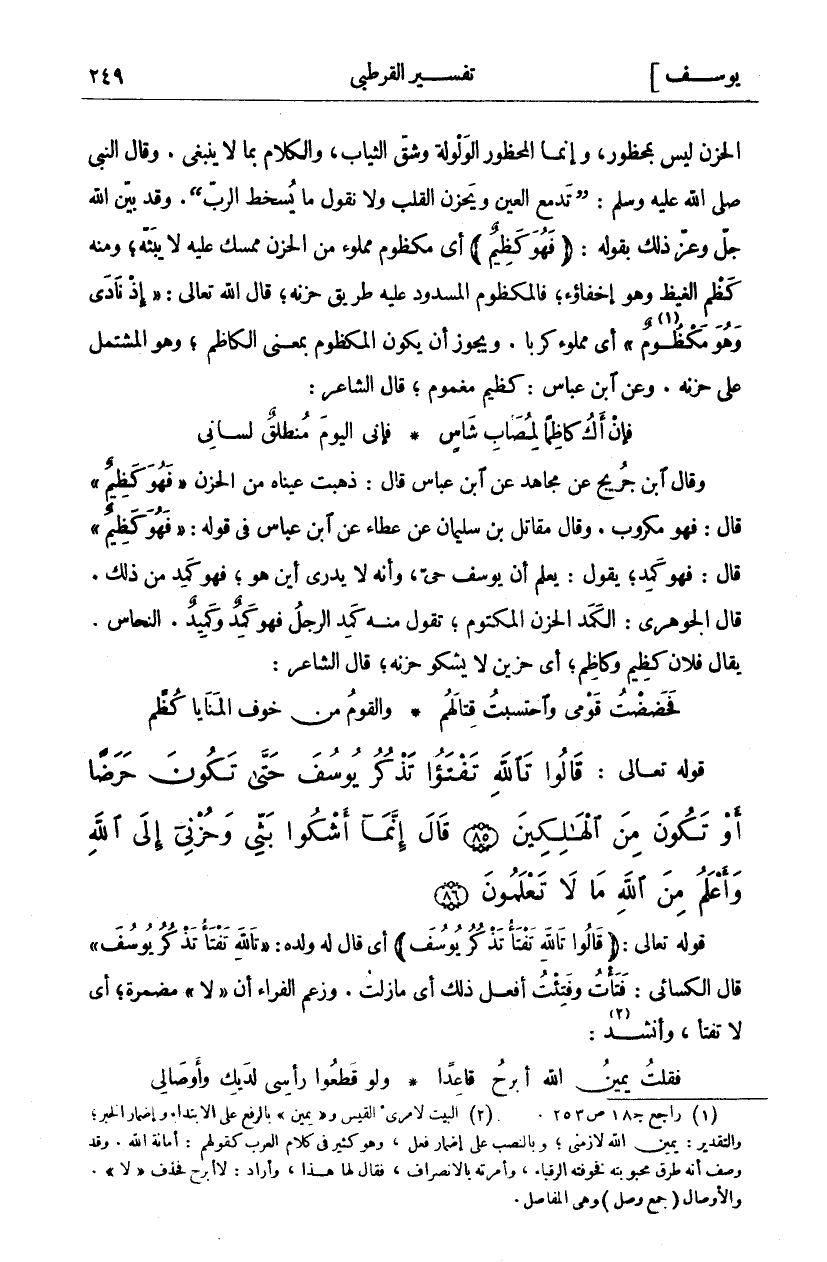 يوسف ] تفسير القرطبى ٢٤٩
الحزن ليس بمحظور، و إنما المحظور الوَلْولة وشقّ الثياب، والكلام بما لا ينبغى . وقال النبى
صلى الله عليه وسلم : ” تدمع العين ويَحزن القلب ولا نقول ما يُسخط الربّ“ . وقد بيّن الله
جلّ وعزّ ذلك بقوله : ﴿ فَهُوَ كَظِيمٌ ﴾ أى مكظوم مملوء من الحزن ممسك عليه لا يبثّه؛ ومنه
كَظْم الغيظ وهو إخفاؤه؛ فالمكظوم المسدود عليه طريق حزنه؛ قال الله تعالى : « إِذْ نَادَى
وَهُوَ مَكْظُومٌ » (١) أى مملوء كربا . ويجوز أن يكون المكظوم بمعنى الكاظم ؛ وهو المشتمل
على حزنه . وعن آبن عباس : كظيم مغموم ؛ قال الشاعر :
فإنْ أَكُ كاظِمًا لِمُصَابِ شَاسٍ * فإنى اليومَ مُنطلقٌ لسانى
وقال آبن جُريج عن مجاهد عن آبن عباس قال : ذهبت عيناه من الحزن « فَهُوَ كَظِيمٌ »
قال : فهو مكروب . وقال مقاتل بن سليمان عن عطاء عن آبن عباس فى قوله : « فَهُوَ كَظِيمٌ »
قال : فهو كَمِد؛ يقول : يعلم أن يوسف حىّ، وأنه لا يدرى أين هو ؛ فهو كَمِد من ذلك .
قال الجوهرى : الكَمَد الحزن المكتوم ؛ تقول منه كَمِد الرجلُ فهو كَمِدٌ وكَمِيدٌ . النحاس .
يقال فلان كظِيم وكاظِم؛ أى حزين لا يشكو حزنه؛ قال الشاعر :
فَحَضَضْتُ قَوْمى وآحتسبتُ قِتالَهُم * والقومُ من خوف المَنَايا كُظَّم
قوله تعالى : قَالُوا تَٱللَّهِ تَفْتَؤُا تَذْكُرُ يُوسُفَ حَتَّىٰ تَكُونَ حَرَضًا
أَوْ تَكُونَ مِنَ ٱلْهَـٰلِكِينَ ٨٥ قَالَ إِنَّمَآ أَشْكُوا بَثِّى وَحُزْنِىٓ إِلَى ٱللَّهِ
وَأَعْلَمُ مِنَ ٱللَّهِ مَا لَا تَعْلَمُونَ ٨٦
قوله تعالى : ﴿ قَالُوا تَاللَّهِ تَفْتَأُ تَذْكُرُ يُوسُفَ ﴾ أى قال له ولده : « تَاللَّهِ تَفْتَأُ تَذْكُرُ يُوسُفَ »
قال الكسائى : فَتَأْتُ وفَتِئْتُ أفعل ذلك أى مازلت . وزعم الفراء أن « لا » مضمرة؛ أى
لا تفتأ ، وأنشد (٢) :
فقلتُ يمينُ الله أبرحُ قاعدًا * ولو قَطَعُوا رأسِى لديكِ وأوصَالِى
(١) راجع جـ١٨ ص ٢٥٣ . (٢) البيت لامرئ القيس و « يمين » بالرفع على الابتداء وإضمار الخبر؛
والتقدير : يمين الله لازمنى ؛ وبالنصب على إضمار فعل ، وهو كثير فى كلام العرب كقولهم : أمانة الله . وقد
وصف أنه طرق محبوبته فخوفته الرقباء ، وأمرته بالانصراف ، فقال لها هذا ، وأراد : لا أبرح فحذف « لا » .
والأوصال ( جمع وصل ) وهى المفاصل .